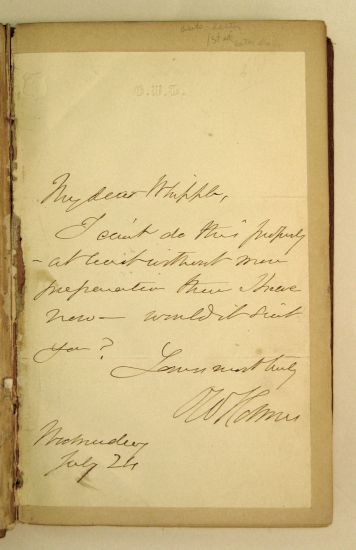 My dear Whipple,
I can't do this properly
- at least without more
preparation than I have
now - would it suit
you?
Yours most truly
O W Holmes
Wednesday
July 24